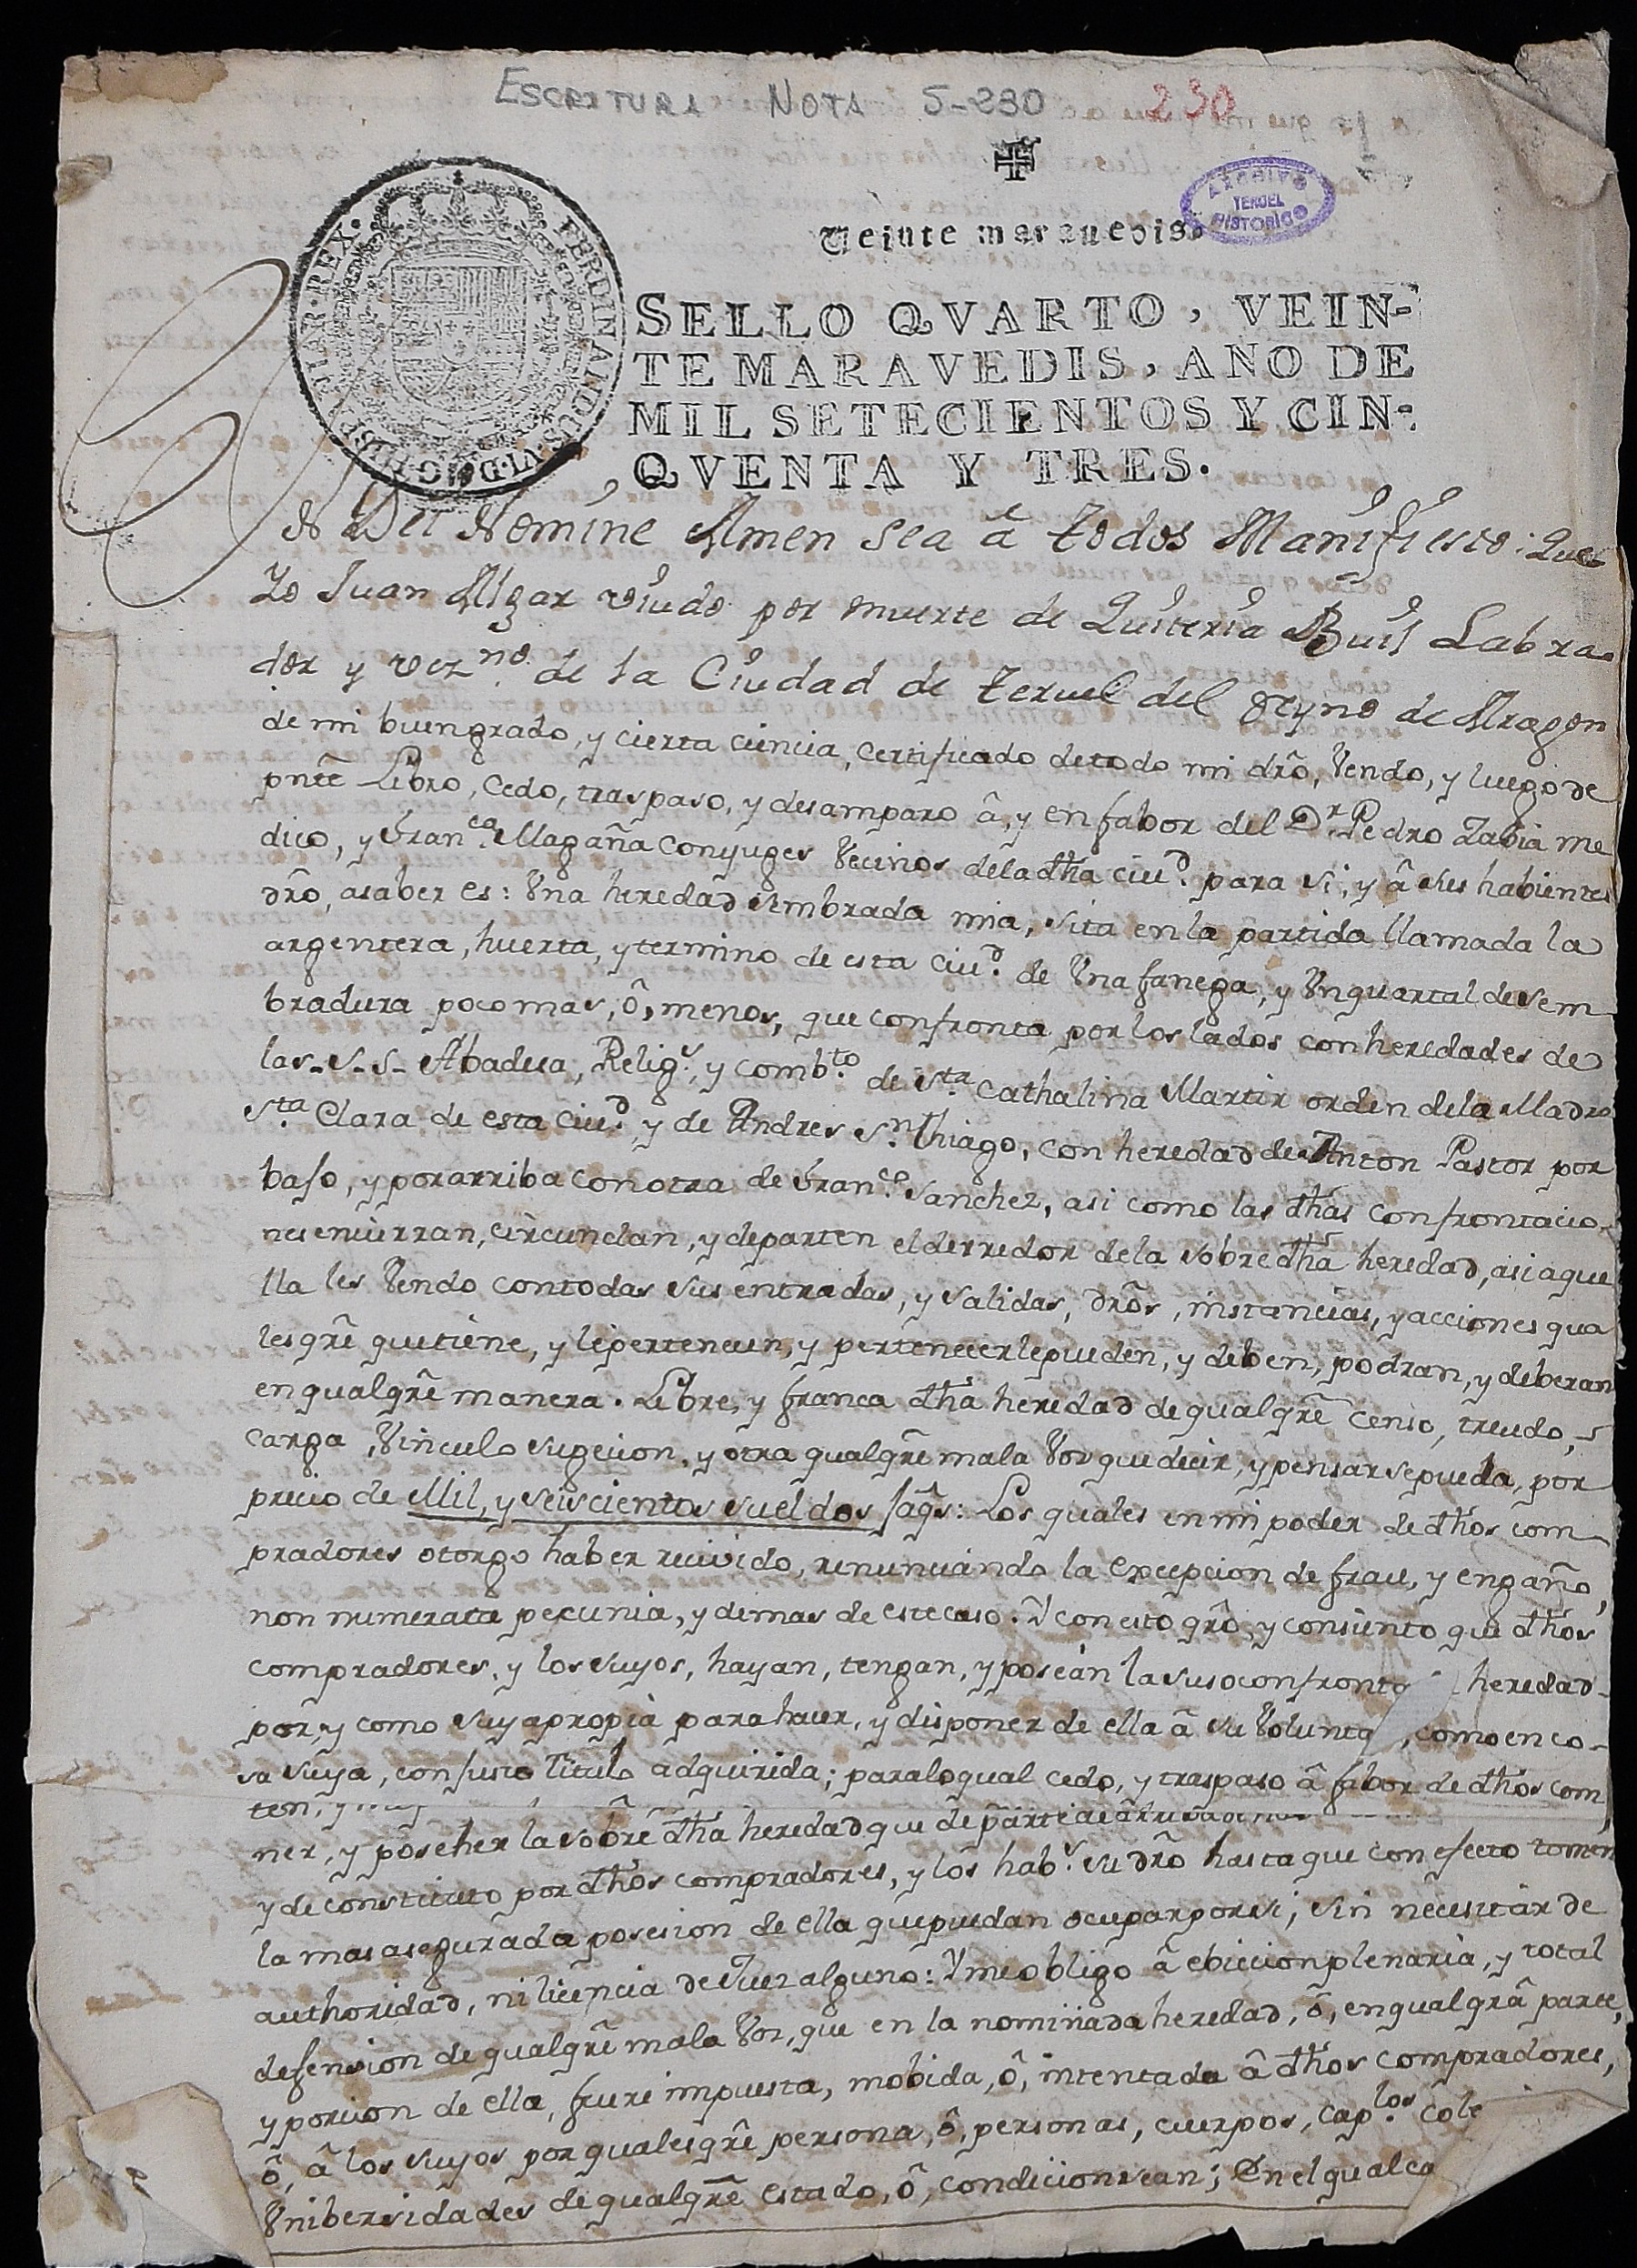 ESCRITURA NOTA 5-230 230
ARCHIVO
TERUEL
HISTORICO
Veinte maravedis
FERDINANDUS·VI·D·G·HISPANIAR·REX·
SELLO QVARTO, VEIN-
TE MARAVEDIS, AÑO DE
MIL SETECIENTOS Y CIN-
QVENTA Y TRES.
In Dei Nomine Amen sea â todos Manifiesto: Que
Yo Juan Algar viudo por muerte de Quiteria Buil Labra-
dor y vezno. de la Ciudad de Teruel del Reyno de Aragon
de mi buen grado, y cierta ciencia, certificado de todo mi dr̃o, Vendo, y luego de
pnt̃e Libro, cedo, traspaso, y desamparo â, y en fabor del Dr. Pedro Zabia me
dico, y Franca. Magaña conyuges Vecinos de la dh̃a ciud. para si, y â sus habientes
dr̃o, asaber es: Una heredad sembrada mia, sita en la partida llamada la
argentera, huerta, y termino de esta ciud. de Una fanega, y Un quartal de sem
bradura poco mas, ô, menos, que confronta por los lados con heredades de
las - S - S - Abadesa, Religs. y combto. de Sta. Cathalina Martir orden de la Madre
Sta. Clara de esta ciud. y de Andres Sn. Thiago, con heredad de Anton Pastor por
baso, y por arriba con otra de Franco. Sanchez, asi como las dh̃as confrontacio-
nes encierran, circundan, y departen el derredor de la sobredh̃a heredad, asi aque
lla les Vendo con todas sus entradas, y salidas, dr̃os, instancias, y acciones qua
lesqr̃e que tiene, y le pertenecen, y pertenecer le pueden, y deben, podran, y deberan
en qualqr̃e manera. Libre, y franca dh̃a heredad de qualqr̃e censo, treudo, -
carga, Vinculo sugecion, y otra qualqr̃e mala Voz que decir, y pensar se pueda, por
precio de Mil, y seiscientos sueldos Jaq̃s: Los quales en mi poder de dh̃os com
pradores otorgo haber recivido, renunciando la excepcion de frau, y engaño,
non numerata pecunia, y demas de este caso. Y con esto qr̃o, y consiento que dh̃os
compradores, y los suyos, hayan, tengan, y posean la suso confronta heredad
por, y como suya propia para hacer, y disponer de ella â su Volunta, como en co-
sa suya, con justo Titulo adquirida; para lo qual cedo, y traspaso â fabor de dh̃os com
ner, y poseher la sobre dh̃a heredad que de parte de
y de constituto por dh̃os compradores, y los habs. su dr̃o hasta que con efecto tomen
la mas asegurada posesion de ella que puedan ocupar por si; sin necesitar de
authoridad, ni licencia de Juez alguno: Y me obligo â ebiccion plenaria, y total
defension de qualqr̃e mala Voz, que en la nominada heredad, ô, en qualqr̃a parte,
y porcion de ella, fuere impuesta, mobida, ô, intentada â dh̃os compradores,
ô, â los suyos por qualesqr̃e persona, ô, personas, cuerpos, caplos. cole
Unibersidades de qualqr̃e estado, ô, condicion sean; En el qual ca